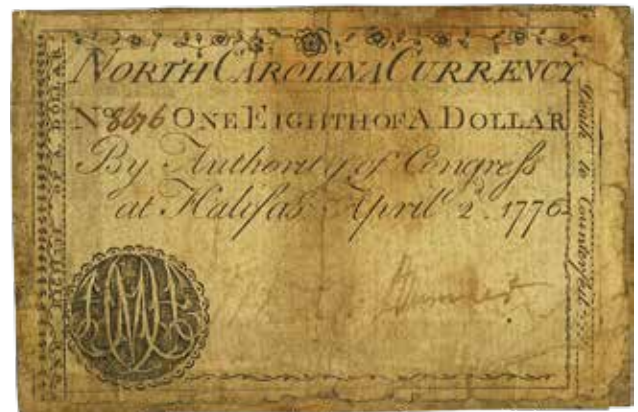 NORTH CAROLINA CURRENCY
No 8676 ONE EIGHTH OF A DOLLAR
By Authority of Congress
at Halifax April 2d. 1776
ONE EIGHTH OF A DOLLAR
Death to Counterfeit